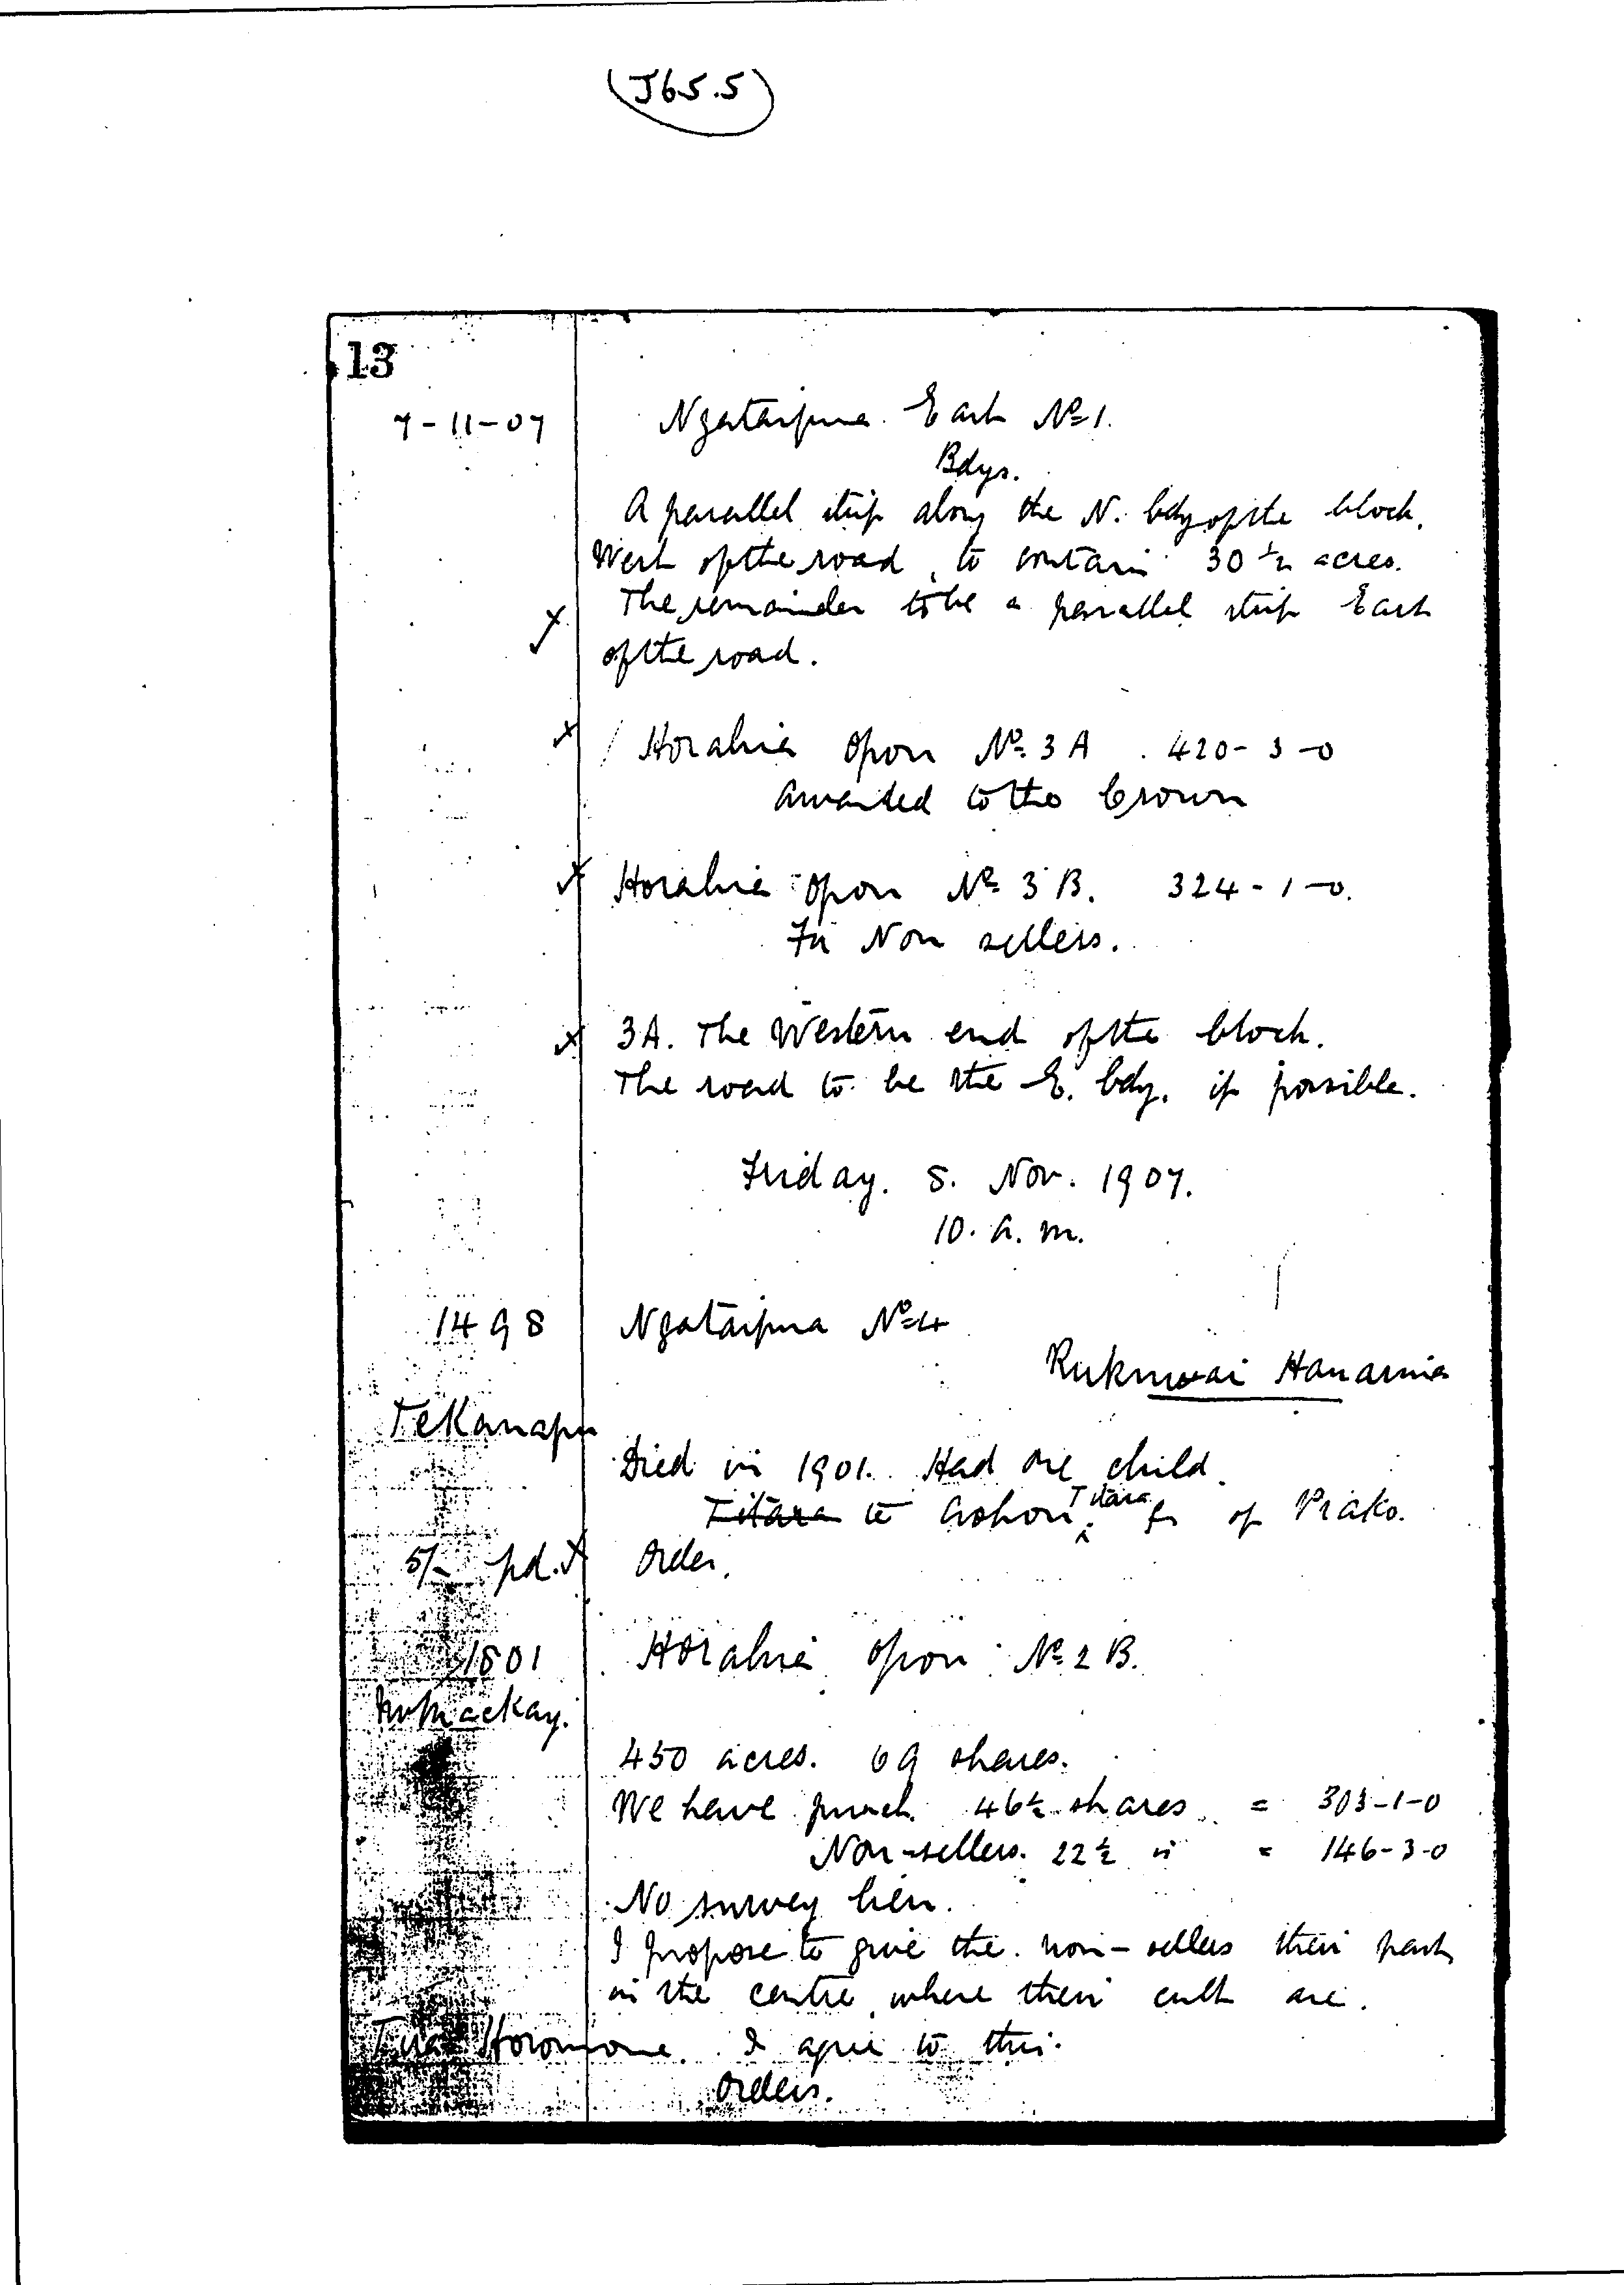 (J65.5)
13
7-11-07 Ngataipua East No 1.
Bdys.
A parallel strip along the N. bdy of the block,
West of the road, to contain 30 1/2 acres.
The remainder to be a parallel strip East
of the road.
Horahia Opou No 3A. 420-3-0
awarded to the Crown
Horahia Opou No 3B. 324-1-0.
For Non sellers.
3A. The Western end of the block.
The road to be the E. bdy. if possible.
Friday. 8. Nov. 1907.
10. a. m.
1498 Ngataipua No 4
Rukuwai Hanarua
Te Kanapu
Died in 1901. Had one child.
Titara te Aohou Titara of Piako.
5/- pd. Order.
1501 Horahia Opou No 2B.
Mr Mackay.
450 acres. 69 shares.
We have purch 46½ shares = 303-1-0
Non-sellers. 22½ " = 146-3-0
No survey lien.
I propose to give the non-sellers their part
in the centre, where their cult are.
Tua Horomona. I agree to this.
Orders.